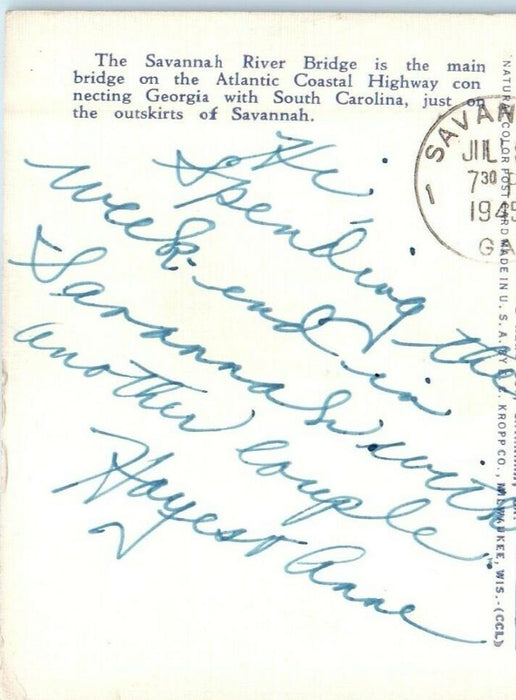 The Savannah River Bridge is the main
bridge on the Atlantic Coastal Highway con
necting Georgia with South Carolina, just on
the outskirts of Savannah.
SAVAN
JUL
7 30
194
G
Hi,
Spending the
week-end in
Savannah with
another couple.
Hayes & Anne
NATURAL COLOR POST CARD MADE IN U. S. A. BY E. C. KROPP CO., MILWAUKEE, WIS.-(CCL)